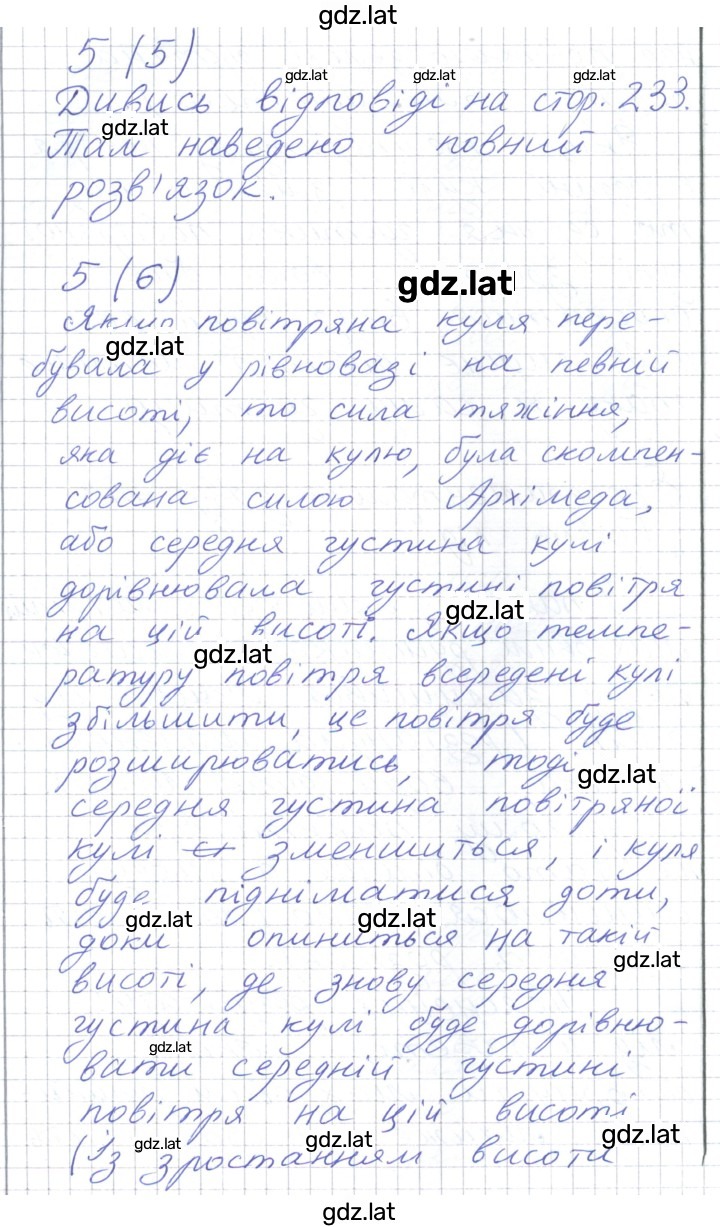 gdz.lat
5 (5)
gdz.lat gdz.lat gdz.lat
Дивись відповіді на стор. 233.
gdz.lat
Там наведено повний
розв'язок.
5 (6)
gdz.lat
Якщо повітряна куля пере-
gdz.lat
бувала у рівновазі на певній
висоті, то сила тяжіння,
яка діє на кулю, була скомпен-
сована силою Архімеда,
або середня густина кулі
дорівнювала густині повітря
gdz.lat
на цій висоті. Якщо темпе-
gdz.lat
ратуру повітря всередені кулі
збільшити, це повітря буде
розширюватись, тоді
gdz.lat
середня густина повітряної
кулі зменшиться, і куля
буде підніматися доти,
gdz.lat gdz.lat
доки опиниться на такій
gdz.lat
висоті, де знову середня
густина кулі буде дорівню-
gdz.lat
вати середній густині
повітря на цій висоті
gdz.lat gdz.lat gdz.lat
(із зростанням висоти
gdz.lat